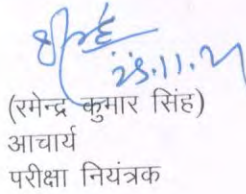 25.11.21
(रमेन्द्र कुमार सिंह)
आचार्य
परीक्षा नियंत्रक